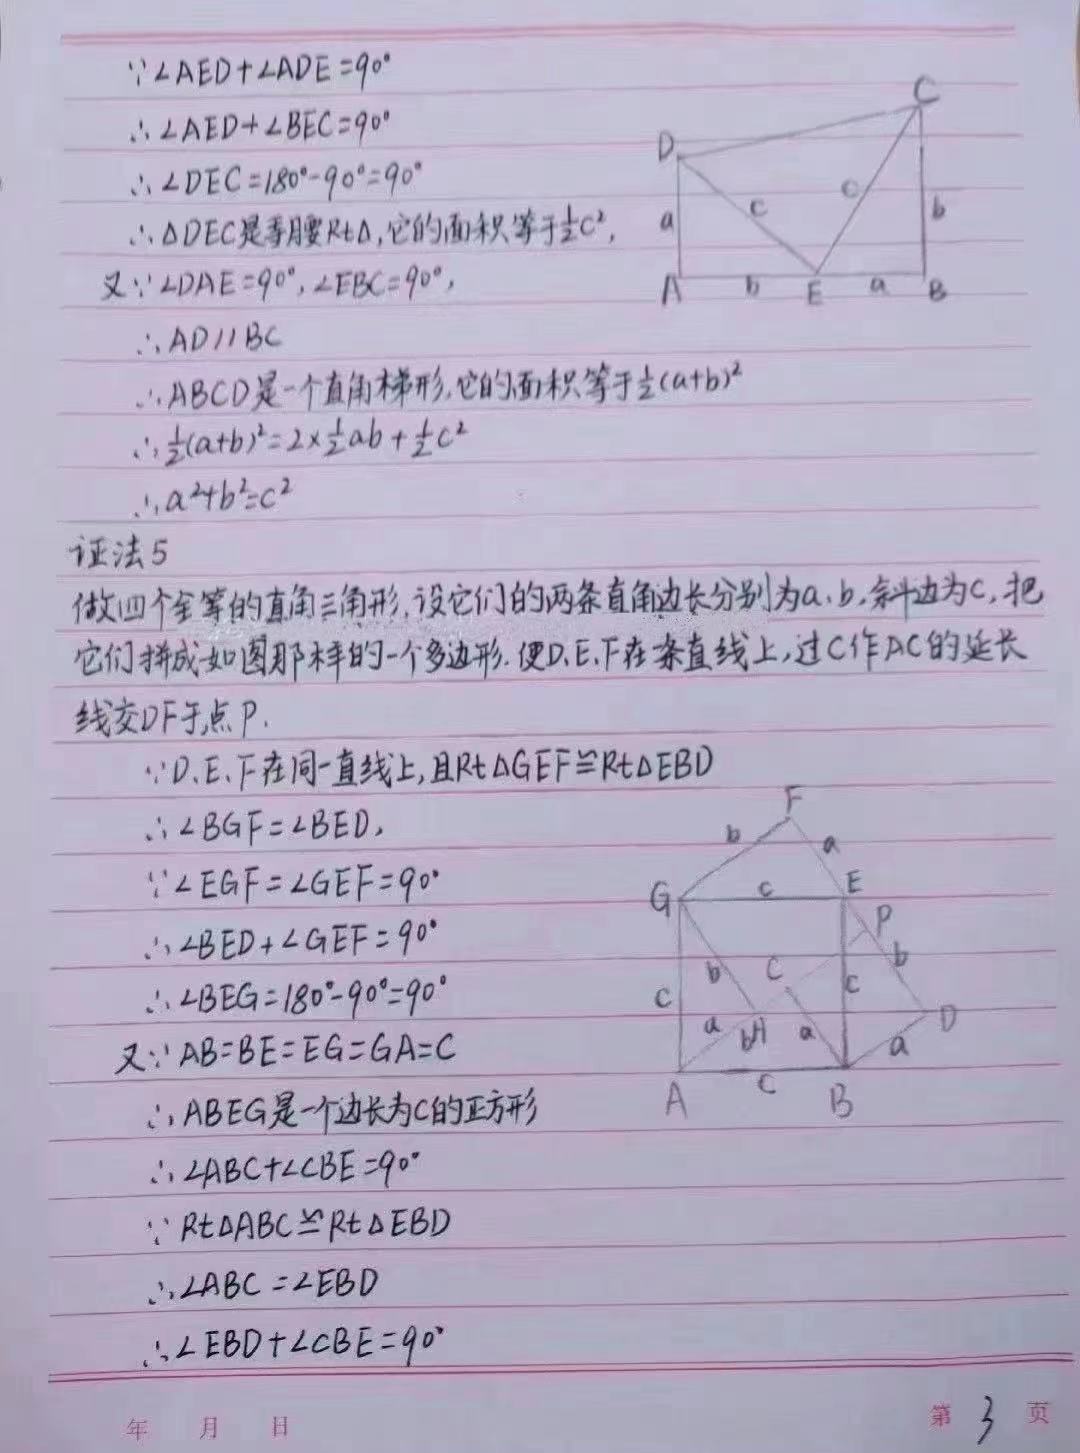 ∵∠AED+∠ADE=90°
∴∠AED+∠BEC=90°
∴∠DEC=180°-90°=90°
∴△DEC是等腰Rt△,它的面积等于½c²,
又∵∠DAE=90°,∠EBC=90°,
∴AD∥BC
∴ABCD是一个直角梯形,它的面积等于½(a+b)²
∴½(a+b)²=2×½ab+½c²
∴a²+b²=c²
D
C
a
c
c
b
A
b
E
a
B
证法5
做四个全等的直角三角形,设它们的两条直角边长分别为a、b,斜边为c,把
它们拼成如图那样的一个多边形.使D、E、F在条直线上,过C作AC的延长
线交DF于点P.
∵D、E、F在同一直线上,且Rt△GEF≌Rt△EBD
∴∠BGF=∠BED,
∵∠EGF=∠GEF=90°
∴∠BED+∠GEF=90°
∴∠BEG=180°-90°=90°
又∵AB=BE=EG=GA=C
∴ABEG是一个边长为C的正方形
∴∠ABC+∠CBE=90°
∵Rt△ABC≌Rt△EBD
∴∠ABC=∠EBD
∴∠EBD+∠CBE=90°
F
b
a
G
c
E
P
b
C
b
c
c
a
b
H
a
a
D
A
c
B
年 月 日
第 3 页